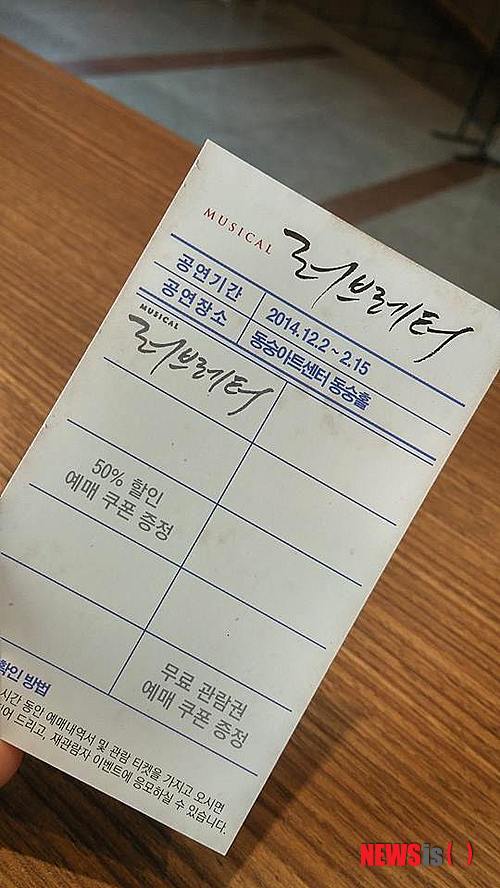 MUSICAL 러브레터
공연기간 2014.12.2 ~ 2.15
공연장소 동숭아트센터 동숭홀
MUSICAL
러브레터
50% 할인
예매 쿠폰 증정
무료 관람권
예매 쿠폰 증정
확인 방법
시간 동안 예매내역서 및 관람 티켓을 가지고 오시면
드리고, 재관람자 이벤트에 응모하실 수 있습니다.
NEWSis( )